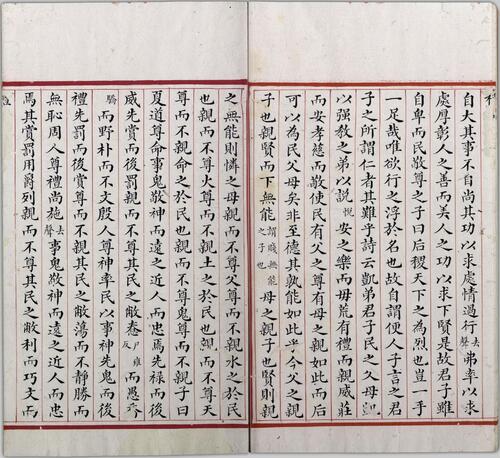 自大其事不自尚其功以求處情過行去聲弗率以求
處厚彰人之善而美人之功以求下賢是故君子雖
自卑而民敬尊之子曰后稷天下之為烈也豈一手
一足哉唯欲行之浮於名也故自謂便人子言之君
子之所謂仁者其難乎詩云凱弟君子民之父母凱
以強教之弟以說悅安之樂而毋荒有禮而親威莊
而安孝慈而敬使民有父之尊有母之親如此而后
可以為民父母矣非至德其孰能如此乎今父之親
子也親賢而下無能謂賤無能之子也母之親子也賢則親
之無能則憐之母親而不尊父尊而不親水之於民
也親而不尊火尊而不親土之於民也親而不尊天
尊而不親命之於民也親而不尊鬼尊而不親子曰
夏道尊命事鬼敬神而遠之近人而忠焉先祿而後
威先賞而後罰親而不尊其民之敝惷尸雍反而愚喬
驕而野朴而不文殷人尊神率民以事神先鬼而後
禮先罰而後賞尊而不親其民之敝蕩而不靜勝而
無恥周人尊禮尚施去聲事鬼敬神而遠之近人而忠
焉其賞罰用爵列親而不尊其民之敝利而巧文而